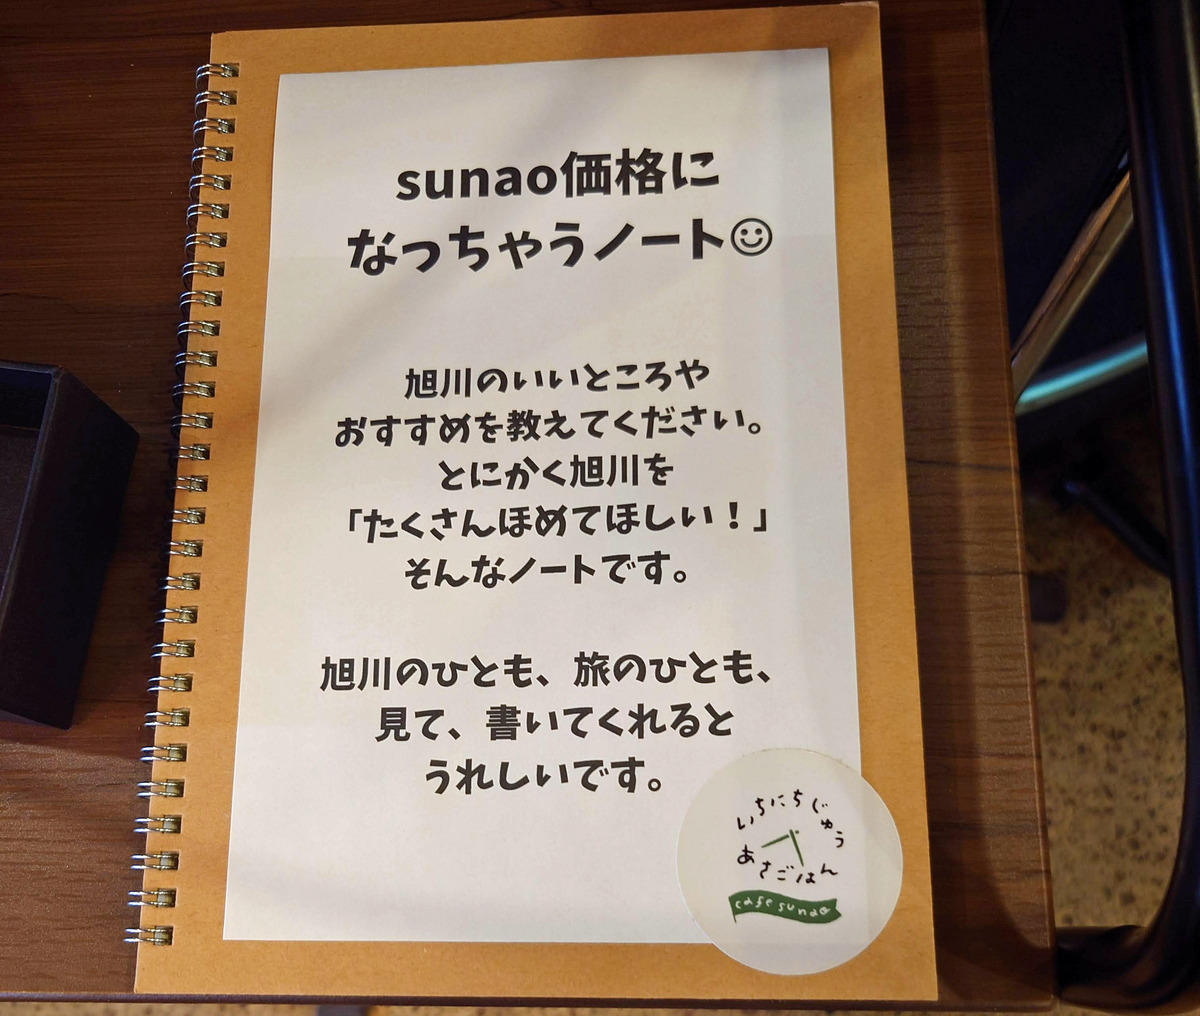 sunao価格に
なっちゃうノート☺
旭川のいいところや
おすすめを教えてください。
とにかく旭川を
「たくさんほめてほしい！」
そんなノートです。
旭川のひとも、旅のひとも、
見て、書いてくれると
うれしいです。
いちにちじゅう
あさごはん
cafe sunao